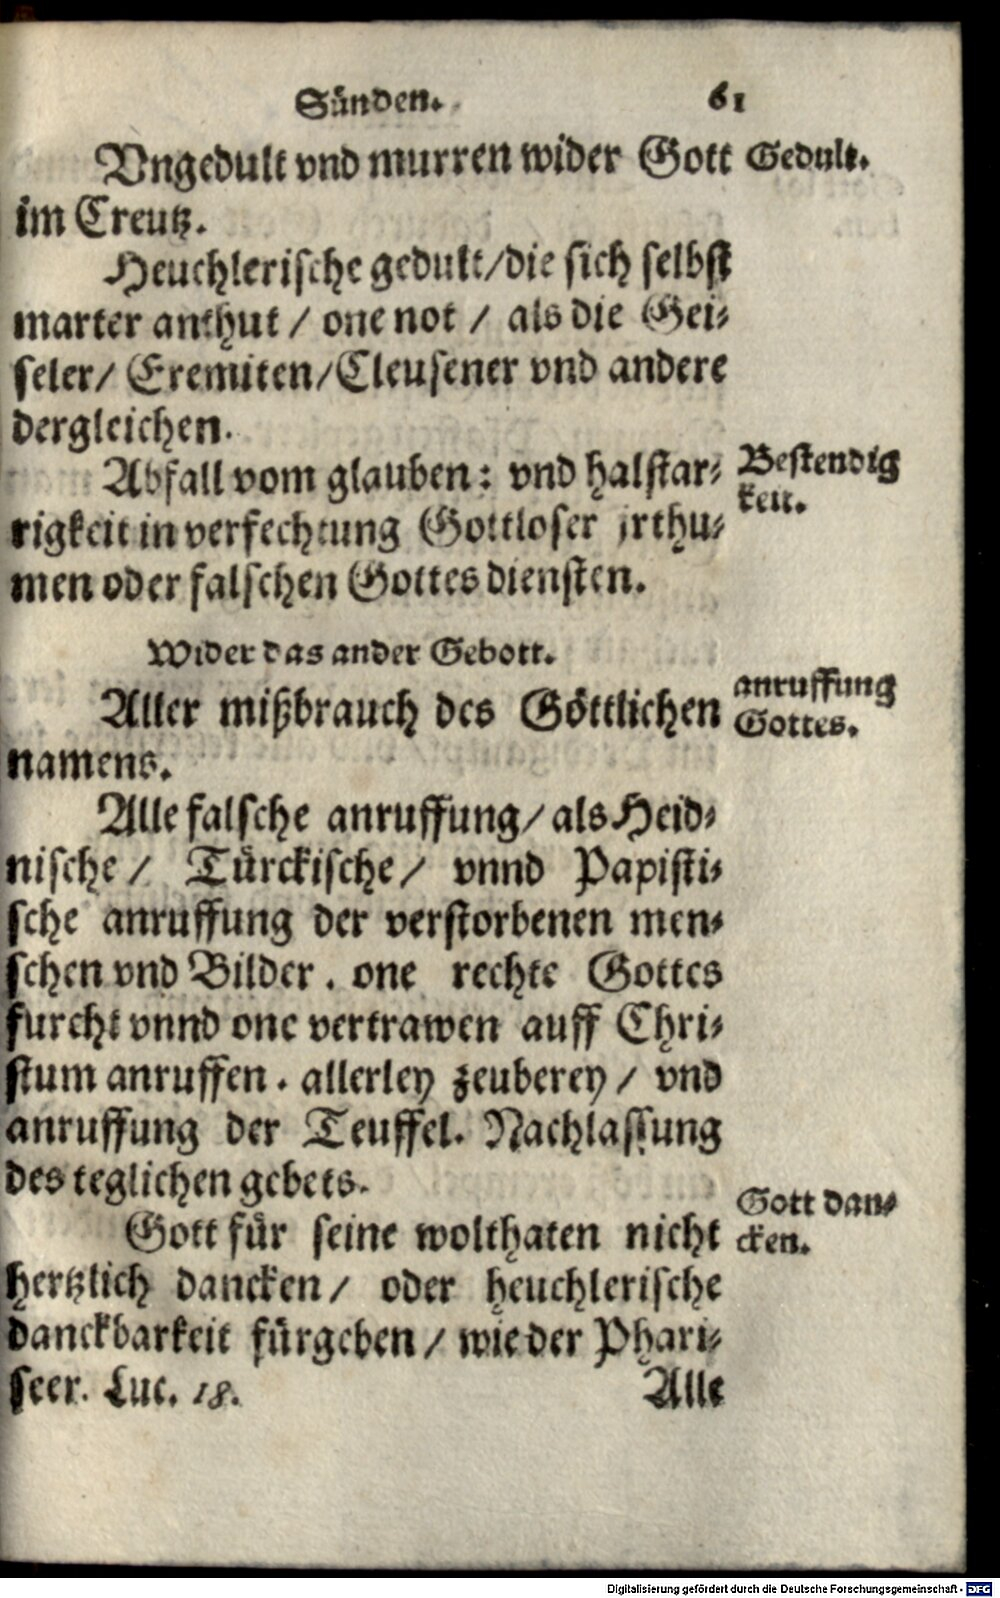 Sünden. 61
Vngedult vnd murren wider Gott Gedult.
im Creutz.
Heuchlerische gedult/die sich selbst
marter anthut / one not / als die Gei-
seler/ Eremiten/Cleusener vnd andere
dergleichen.
Abfall vom glauben: vnd halstar- Bestendig
rigkeit in verfechtung Gottloser jrthu- keit.
men oder falschen Gottes diensten.
Wider das ander Gebott.
Aller mißbrauch des Göttlichen anruffung
namens. Gottes.
Alle falsche anruffung/ als Heid-
nische / Türckische / vnnd Papisti-
sche anruffung der verstorbenen men-
schen vnd Bilder. one rechte Gottes
furcht vnnd one vertrawen auff Chri-
stum anruffen. allerley zeuberey / vnd
anruffung der Teuffel. Nachlassung
des teglichen gebets.
Gott für seine wolthaten nicht Gott dan-
hertzlich dancken / oder heuchlerische cken.
danckbarkeit fürgeben / wie der Phari-
seer. Luc. 18. Alle
Digitalisierung gefördert durch die Deutsche Forschungsgemeinschaft - DFG